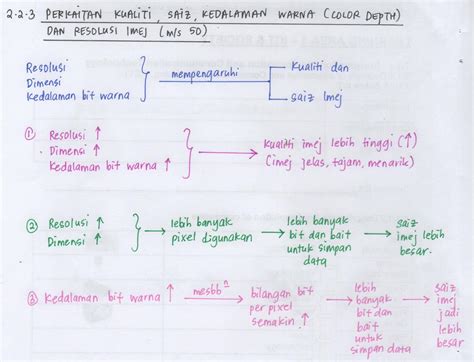 2.2.3 PERKAITAN KUALITI, SAIZ, KEDALAMAN WARNA (COLOR DEPTH)
DAN RESOLUSI IMEJ (m/s 50).
Resolusi
Dimensi
Kedalaman bit warna
mempengaruhi
Kualiti dan
saiz Imej
① Resolusi ↑
Dimensi ↑
Kedalaman bit warna ↑
Kualiti imej lebih tinggi (↑)
(imej jelas, tajam, menarik)
② Resolusi ↑
Dimensi ↑
lebih banyak
pixel digunakan
lebih banyak
bit dan bait
untuk simpan
data
saiz
imej lebih
besar.
③ Kedalaman bit warna ↑
mesbb n
bilangan bit
per pixel
semakin ↑
lebih
banyak
bit dan
bait
untuk
simpan data
saiz
imej
jadi
lebih
besar